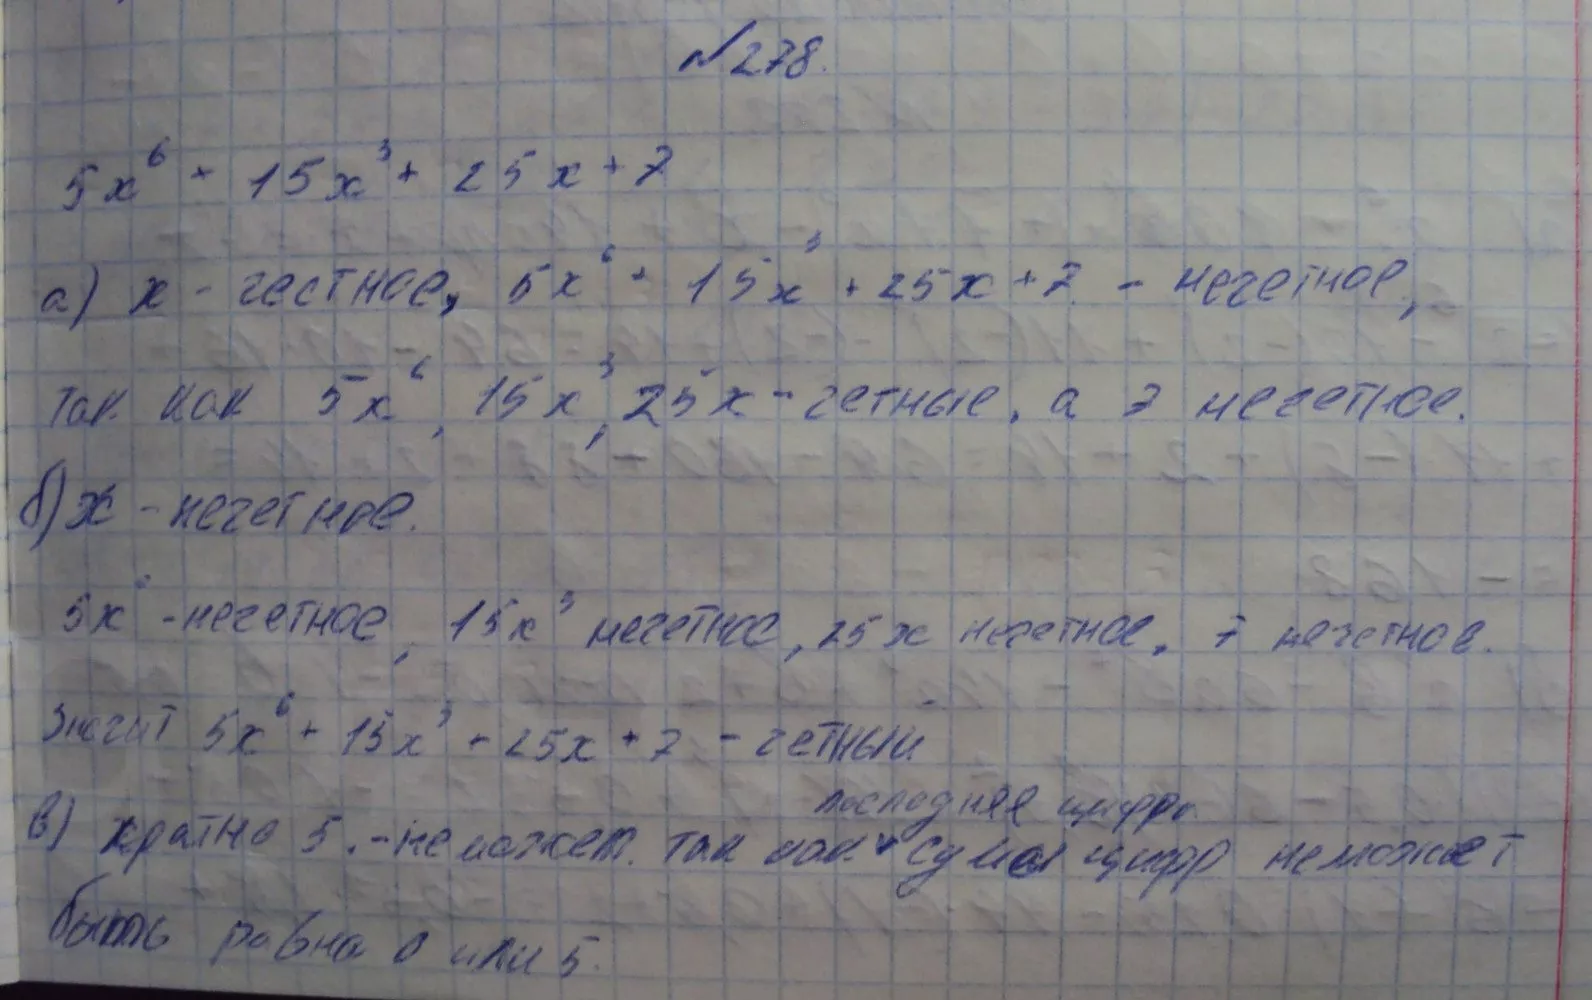 №278.
5x⁶ + 15x³ + 25x + 7
а) x - четное, 5x⁶ + 15x³ + 25x + 7 - нечетное,
так как 5x⁶, 15x³, 25x - четные, а 7 нечетное.
б) x - нечетное.
5x⁶ - нечетное, 15x³ нечетное, 25x нечетное, 7 нечетное.
Значит 5x⁶ + 15x³ + 25x + 7 - четный
последняя цифра
в) кратно 5. - не может. так как сумма цифр не может
быть равна 0 или 5.